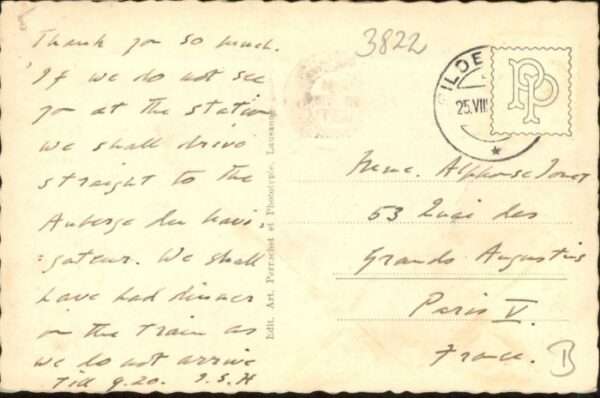 Thank you so much.
If we do not see
you at the station
we shall drive
straight to the
Auberge du Navi-
:gateur. We shall
have had dinner
in the train as
we do not arrive
till 9.20. I.S.H
Edit. Art. Perrochet et Phototypie, Lausanne
3822
25.VIII
PP
Mme. Alphonse Jouet
53 Quai des
Grands Augustins
Paris V.
France.
B